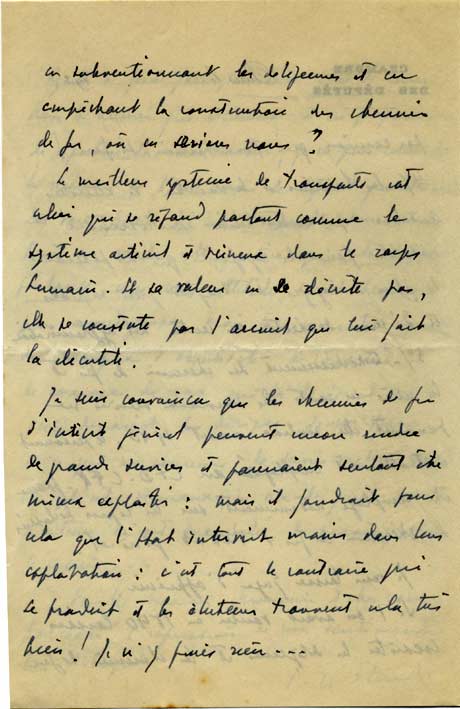 en subventionnant les diligences et en
empêchant la construction des chemins
de fer, où en serions nous ?
Le meilleur système de transports est
celui qui se répand partout comme le
système artériel et veineux dans le corps
humain. Et sa valeur ne se décrète pas,
elle se constate par l'accueil que lui fait
la clientèle.
Je suis convaincu que les chemins de fer
d'intérêt général peuvent encore rendre
de grands services et pourraient surtout être
mieux exploités : mais il faudrait pour
cela que l'Etat intervint moins dans leur
exploitation : c'est tout le contraire qui
se produit et les électeurs trouvent cela très
bien ! Je n'y puis rien ...